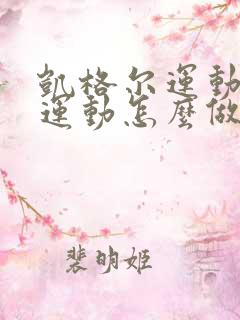 凱格尔運動
運動怎麼做
裴明姬